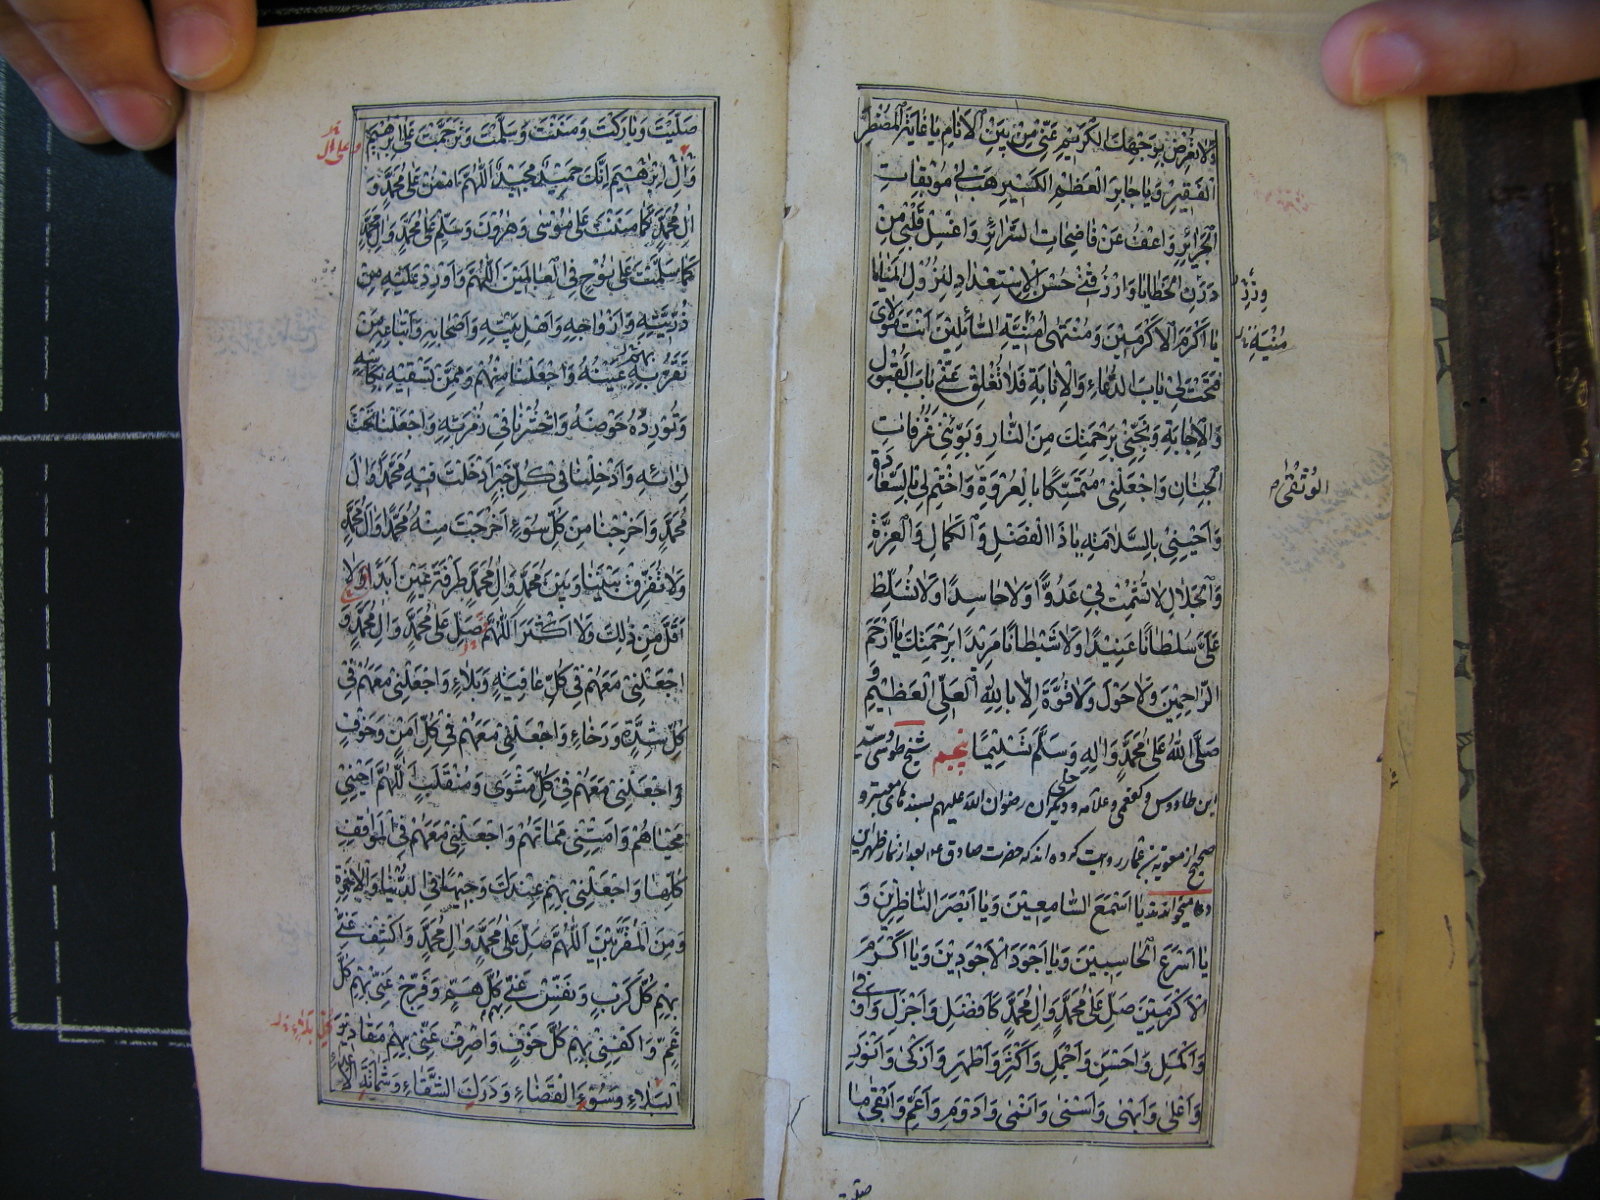 وَلا تُعْرِضْ بِوَجْهِكَ الْكَرِيمِ عَنِّي مِنْ بَيْنِ الْأَنَامِ يَا غَايَةَ الْمُضْطَرِّ
الْفَقِيرِ وَيَا جَابِرَ الْعَظِيمِ الْكَسِيرِ هَبْ لِي مُوبِقَاتِ
الْجَرَائِرِ وَاعْفُ عَنْ فَاضِحَاتِ السَّرَائِرِ وَاغْسِلْ قَلْبِي مِنْ
دَرَنِ الْخَطَايَا وَارْزُقْنِي حُسْنَ الْاِسْتِعْدَادِ لِنُزُولِ الْمَنَايَا
يَا أَكْرَمَ الْأَكْرَمِينَ وَمُنْتَهَى أُمْنِيَّةِ السَّائِلِينَ أَنْتَ مَوْلَايَ
فَتَحْتَ لِي بَابَ الدُّعَاءِ وَالْإِنَابَةِ فَلَا تُغْلِقْ عَنِّي بَابَ الْقَبُولِ
وَالْإِجَابَةِ وَنَجِّنِي بِرَحْمَتِكَ مِنَ النَّارِ وَبَوِّئْنِي غُرُفَاتِ
الْجِنَانِ وَاجْعَلْنِي مُتَمَسِّكًا بِالْعُرْوَةِ وَاخْتِمْ لِي بِالسَّعَادَةِ
الْوُثْقَى
وَأَحْيِنِي بِالسَّلَامَةِ يَا ذَا الْفَضْلِ وَالْكَمَالِ وَالْعِزَّةِ
وَالْجَلَالِ لَا تُشْمِتْ بِي عَدُوًّا وَلَا حَاسِدًا وَلَا تُسَلِّطْ
عَلَيَّ سُلْطَانًا عَنِيدًا وَلَا شَيْطَانًا مَرِيدًا بِرَحْمَتِكَ يَا أَرْحَمَ
الرَّاحِمِينَ وَلَا حَوْلَ وَلَا قُوَّةَ إِلَّا بِاللَّهِ الْعَلِيِّ الْعَظِيمِ وَ
صَلَّى اللَّهُ عَلَى مُحَمَّدٍ وَآلِهِ وَسَلَّمَ تَسْلِيمًا پنجم شیخ طوسی و سید
ابن طاووس و کفعمی و علامه حلی و دیگران رضوان الله علیهم بسندهای معتبر و
صحیح از معویة بن عمار روایت کرده اند که حضرت صادق ع بعد از نماز ظهر این
دعا میخواندند يَا أَسْمَعَ السَّامِعِينَ وَيَا أَبْصَرَ النَّاظِرِينَ وَ
يَا أَسْرَعَ الْحَاسِبِينَ وَيَا أَجْوَدَ الْأَجْوَدِينَ وَيَا أَكْرَمَ
الْأَكْرَمِينَ صَلِّ عَلَى مُحَمَّدٍ وَآلِ مُحَمَّدٍ كَأَفْضَلِ وَأَجْزَلِ وَأَوْفَى
وَأَكْمَلِ وَأَحْسَنِ وَأَجْمَلِ وَأَكْثَرِ وَأَطْهَرِ وَأَزْكَى وَأَنْوَرِ
وَأَعْلَى وَأَبْهَى وَأَسْنَى وَأَنْمَى وَأَدْوَمِ وَأَعَمِّ وَأَبْقَى مَا
صَلَّيْتَ وَبَارَكْتَ وَمَنَنْتَ وَسَلَّمْتَ وَتَرَحَّمْتَ عَلَى إِبْرَاهِيمَ
وَآلِ إِبْرَاهِيمَ إِنَّكَ حَمِيدٌ مَجِيدٌ اللَّهُمَّ امْنُنْ عَلَى مُحَمَّدٍ وَ
آلِ مُحَمَّدٍ كَمَا مَنَنْتَ عَلَى مُوسَى وَهَارُونَ وَسَلِّمْ عَلَى مُحَمَّدٍ وَآلِ مُحَمَّدٍ
كَمَا سَلَّمْتَ عَلَى نُوحٍ فِي الْعَالَمِينَ اللَّهُمَّ وَأَوْرِدْ عَلَيْهِ مِنْ
ذُرِّيَّتِهِ وَأَزْوَاجِهِ وَأَهْلِ بَيْتِهِ وَأَصْحَابِهِ وَأَتْبَاعِهِ مَنْ
تَقَرُّ بِهِمْ عَيْنُهُ وَاجْعَلْنَا مِنْهُمْ وَمِمَّنْ تَسْقِيهِ بِكَأْسِهِ
وَتُورِدُهُ حَوْضَهُ وَاحْشُرْنَا فِي زُمْرَتِهِ وَاجْعَلْنَا تَحْتَ
لِوَائِهِ وَأَدْخِلْنَا فِي كُلِّ خَيْرٍ أَدْخَلْتَ فِيهِ مُحَمَّدًا وَآلَ
مُحَمَّدٍ وَأَخْرِجْنَا مِنْ كُلِّ سُوءٍ أَخْرَجْتَ مِنْهُ مُحَمَّدًا وَآلَ مُحَمَّدٍ
وَلَا تُفَرِّقْ بَيْنَنَا وَبَيْنَ مُحَمَّدٍ وَآلِ مُحَمَّدٍ طَرْفَةَ عَيْنٍ أَبَدًا وَلَا
أَقَلَّ مِنْ ذَلِكَ وَلَا أَكْثَرَ اللَّهُمَّ صَلِّ عَلَى مُحَمَّدٍ وَآلِ مُحَمَّدٍ وَ
اجْعَلْنِي مَعَهُمْ فِي كُلِّ عَافِيَةٍ وَبَلَاءٍ وَاجْعَلْنِي مَعَهُمْ فِي
كُلِّ شِدَّةٍ وَرَخَاءٍ وَاجْعَلْنِي مَعَهُمْ فِي كُلِّ أَمْنٍ وَخَوْفٍ
وَاجْعَلْنِي مَعَهُمْ فِي كُلِّ مَثْوًى وَمُنْقَلَبٍ اللَّهُمَّ أَحْيِنِي
مَحْيَاهُمْ وَأَمِتْنِي مَمَاتَهُمْ وَاجْعَلْنِي مَعَهُمْ فِي الْمَوَاقِفِ
كُلِّهَا وَاجْعَلْنِي بِهِمْ عِنْدَكَ وَجِيهًا فِي الدُّنْيَا وَالْآخِرَةِ
وَمِنَ الْمُقَرَّبِينَ اللَّهُمَّ صَلِّ عَلَى مُحَمَّدٍ وَآلِ مُحَمَّدٍ وَاكْشِفْ عَنِّي
بِهِمْ كُلَّ كَرْبٍ وَنَفِّسْ عَنِّي بِهِمْ كُلَّ هَمٍّ وَفَرِّجْ عَنِّي بِهِمْ كُلَّ
غَمٍّ وَاكْفِنِي بِهِمْ كُلَّ خَوْفٍ وَاصْرِفْ عَنِّي بِهِمْ مَقَادِيرَ
الْبَلَاءِ وَسُوءَ الْقَضَاءِ وَدَرَكَ الشَّقَاءِ وَشَمَاتَةَ الْأَعْدَاءِ